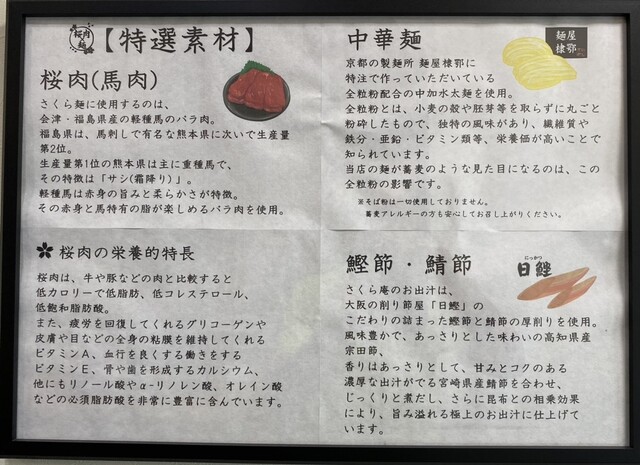 桜肉麺
【特選素材】
桜肉(馬肉)
さくら麺に使用するのは、
会津・福島県産の軽種馬のバラ肉。
福島県は、馬刺しで有名な熊本県に次いで生産量
第2位。
生産量第1位の熊本県は主に重種馬で、
その特徴は「サシ(霜降り)」。
軽種馬は赤身の旨みと柔らかさが特徴。
その赤身と馬特有の脂が楽しめるバラ肉を使用。
桜肉の栄養的特長
桜肉は、牛や豚などの肉と比較すると
低カロリーで低脂肪、低コレステロール、
低飽和脂肪酸。
また、疲労を回復してくれるグリコーゲンや
皮膚や目などの全身の粘膜を維持してくれる
ビタミンA、血行を良くする働きをする
ビタミンE、骨や歯を形成するカルシウム、
他にもリノール酸やα-リノレン酸、オレイン酸
などの必須脂肪酸を非常に豊富に含んでいます。
中華麺
麺屋
棣鄂
京都の製麺所 麺屋棣鄂に
特注で作っていただいている
全粒粉配合の中加水太麺を使用。
全粒粉とは、小麦の殻や胚芽等を取らずに丸ごと
粉砕したもので、独特の風味があり、繊維質や
鉄分・亜鉛・ビタミン類等、栄養価が高いことで
知られています。
当店の麺が蕎麦のような見た目になるのは、この
全粒粉の影響です。
※そば粉は一切使用しておりません。
蕎麦アレルギーの方も安心してお召し上がりください。
鰹節・鯖節
にっかつ
日鰹
さくら庵のお出汁は、
大阪の削り節屋「日鰹」の
こだわりの詰まった鰹節と鯖節の厚削りを使用。
風味豊かで、あっさりとした味わいの高知県産
宗田節、
香りはあっさりとして、甘みとコクのある
濃厚な出汁がでる宮崎県産鯖節を合わせ、
じっくりと煮だし、さらに昆布との相乗効果
により、旨み溢れる極上のお出汁に仕上げて
います。